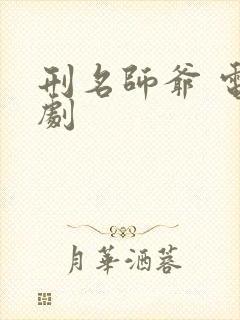 刑名師爺 電
劇
月華洒蓉